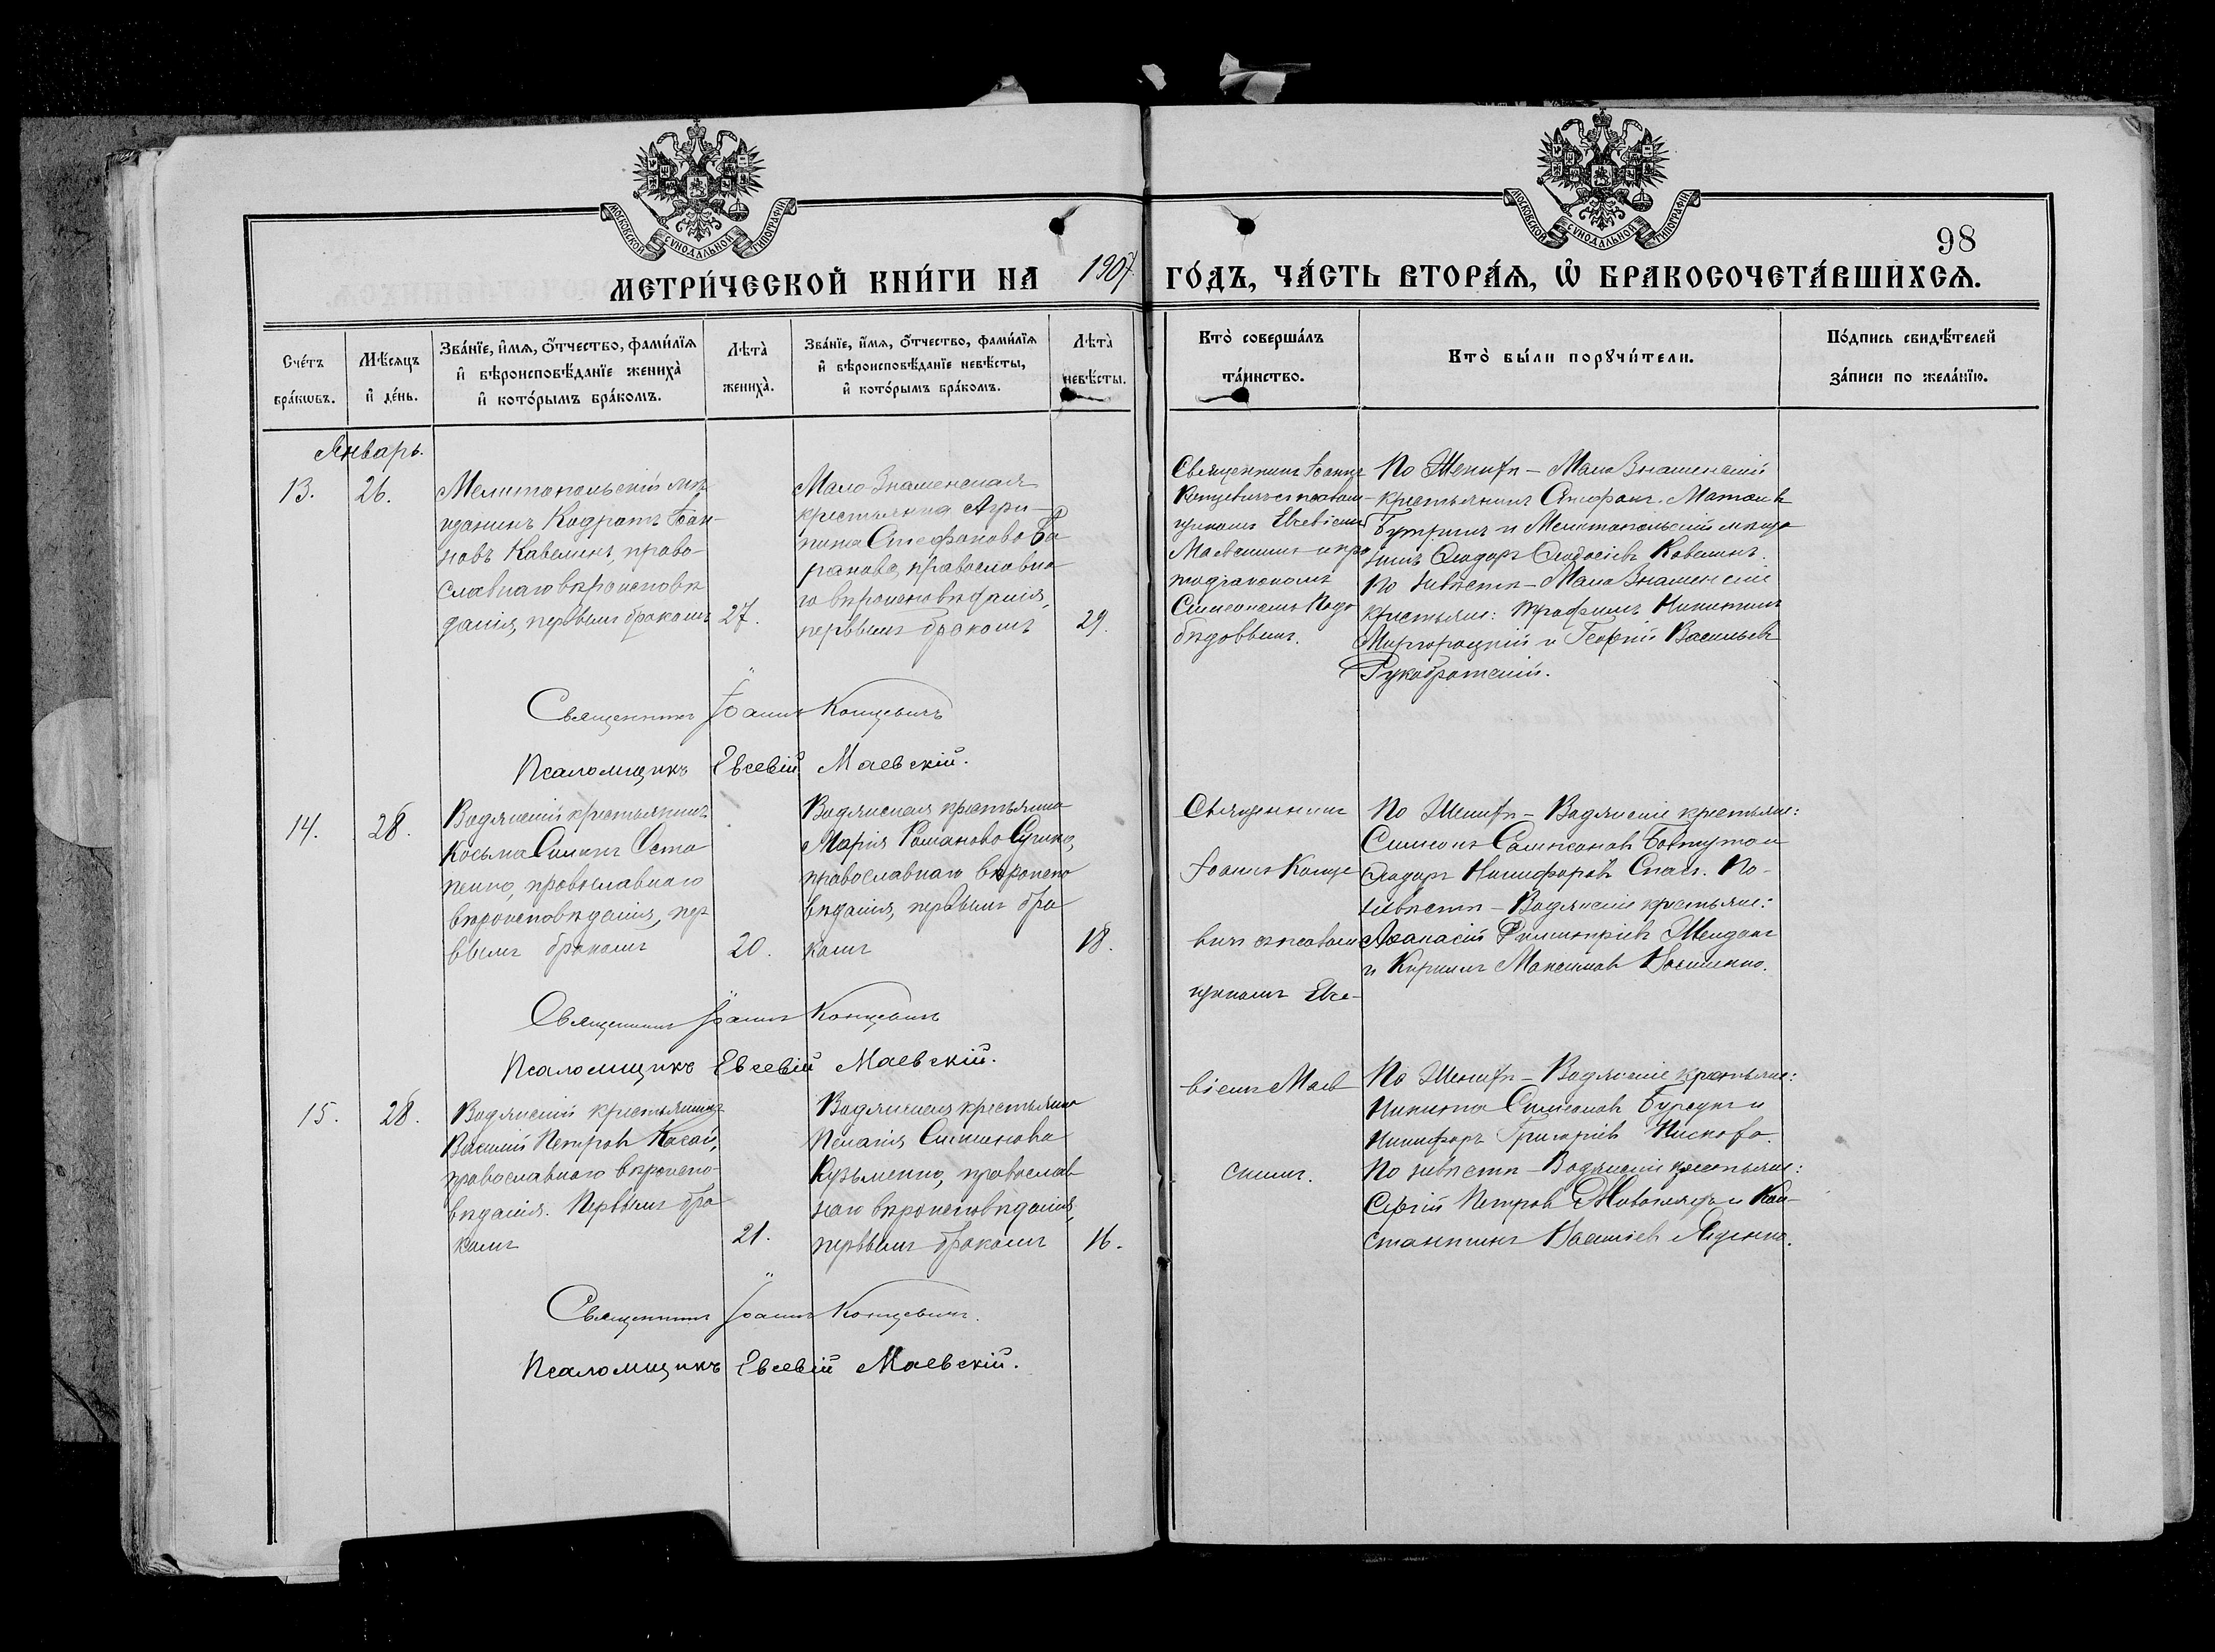 МОСКОВСКОЙ СѴНОДАЛЬНОЙ ТИПОГРАФІИ
МОСКОВСКОЙ СѴНОДАЛЬНОЙ ТИПОГРАФІИ
98
МЕТРИ́ЧЕСКОЙ КНИ́ГИ НА 1907 ГО́ДЪ, ЧА́СТЬ ВТОРА́Ѧ, Ѡ҆ БРАКОСОЧЕТА́ВШИХСѦ.
Сче́тъ бра́кѡвъ.
Мѣ́сяцъ и҆ де́нь.
Зва́нїе, и҆́мѧ, ѻ҆́тчество, фами́лїѧ
и҆ вѣроисповѣ́данїе жениха̀
и҆ кото́рымъ бра́комъ.
Лѣта̀ жениха̀.
Зва́нїе, и҆́мѧ, ѻ҆́тчество, фами́лїѧ
и҆ вѣроисповѣ́данїе невѣ́сты,
и҆ кото́рымъ бра́комъ.
Лѣта̀ невѣ́сты.
Кто̀ соверша́лъ
та́инство.
Кто̀ бы́ли порꙋчи́тели.
По́дпись свидѣ́телей
за́писи по жела́нїю.
Январь.
13.
26.
Мелитопольскій мѣ
щанинъ Кодратъ Іоан-
новъ Кавелинъ, право-
славнаго вѣроисповѣ
данія, первымъ бракомъ
27.
Мало Знаменская
крестьянка Агри-
пина Стефанова Ба
ранова, православна
го вѣроисповѣданія,
первымъ бракомъ
29.
Священникъ Іоаннъ
Концевичъ съ псалом-
щикомъ Евсевіемъ
Маевскимъ и
Симеономъ
По Женихѣ – Мало Знаменскій
крестьянинъ Стефанъ
и Мелитопольскій мѣща
нинъ Ѳеодоръ Ѳеодосіевъ Кавелинъ.
По невѣстѣ – Мало Знаменскіе
крестьяне: Трофимъ Никитинъ
Миргородскій и Георгій Васильевъ
Священникъ Іоаннъ Концевичъ
Псаломщикъ Евсевій Маевскій.
14.
28.
Водянскій крестьянинъ
Косьма Симинъ Оста
пенко, православнаго
вѣроисповѣданія, пер
вымъ бракомъ
20.
Водянская крестьянка
Марія Романова
православнаго вѣроиспо
вѣданія, первымъ бра
комъ
18.
Священникъ
Іоаннъ Конце
вичъ съ псалом
щикомъ Евсе-
віемъ Маев
скимъ.
По Женихѣ – Водянскіе крестьяне:
Симеонъ
Ѳеодоръ Никифоровъ По
невѣстѣ – Водянскіе крестьяне:
Аѳанасій Димитріевъ
и Кириллъ Максимовъ
Священникъ Іоаннъ Концевичъ
Псаломщикъ Евсевій Маевскій.
15.
28.
Водянскій крестьянинъ
Василій Петровъ Косай,
православнаго вѣроиспо-
вѣданія. Первымъ бра
комъ
21.
Водянская крестьянка
Пелагія
Кузьменко, православ
наго вѣроисповѣданія,
первымъ бракомъ
16.
По Женихѣ – Водянскіе крестьяне:
Никита Симеоновъ и
Никифоръ Григоріевъ
По невѣстѣ – Водянскіе крестьяне:
Сергій Петровъ и Кон-
стантинъ
Священникъ Іоаннъ Концевичъ.
Псаломщикъ Евсевій Маевскій.